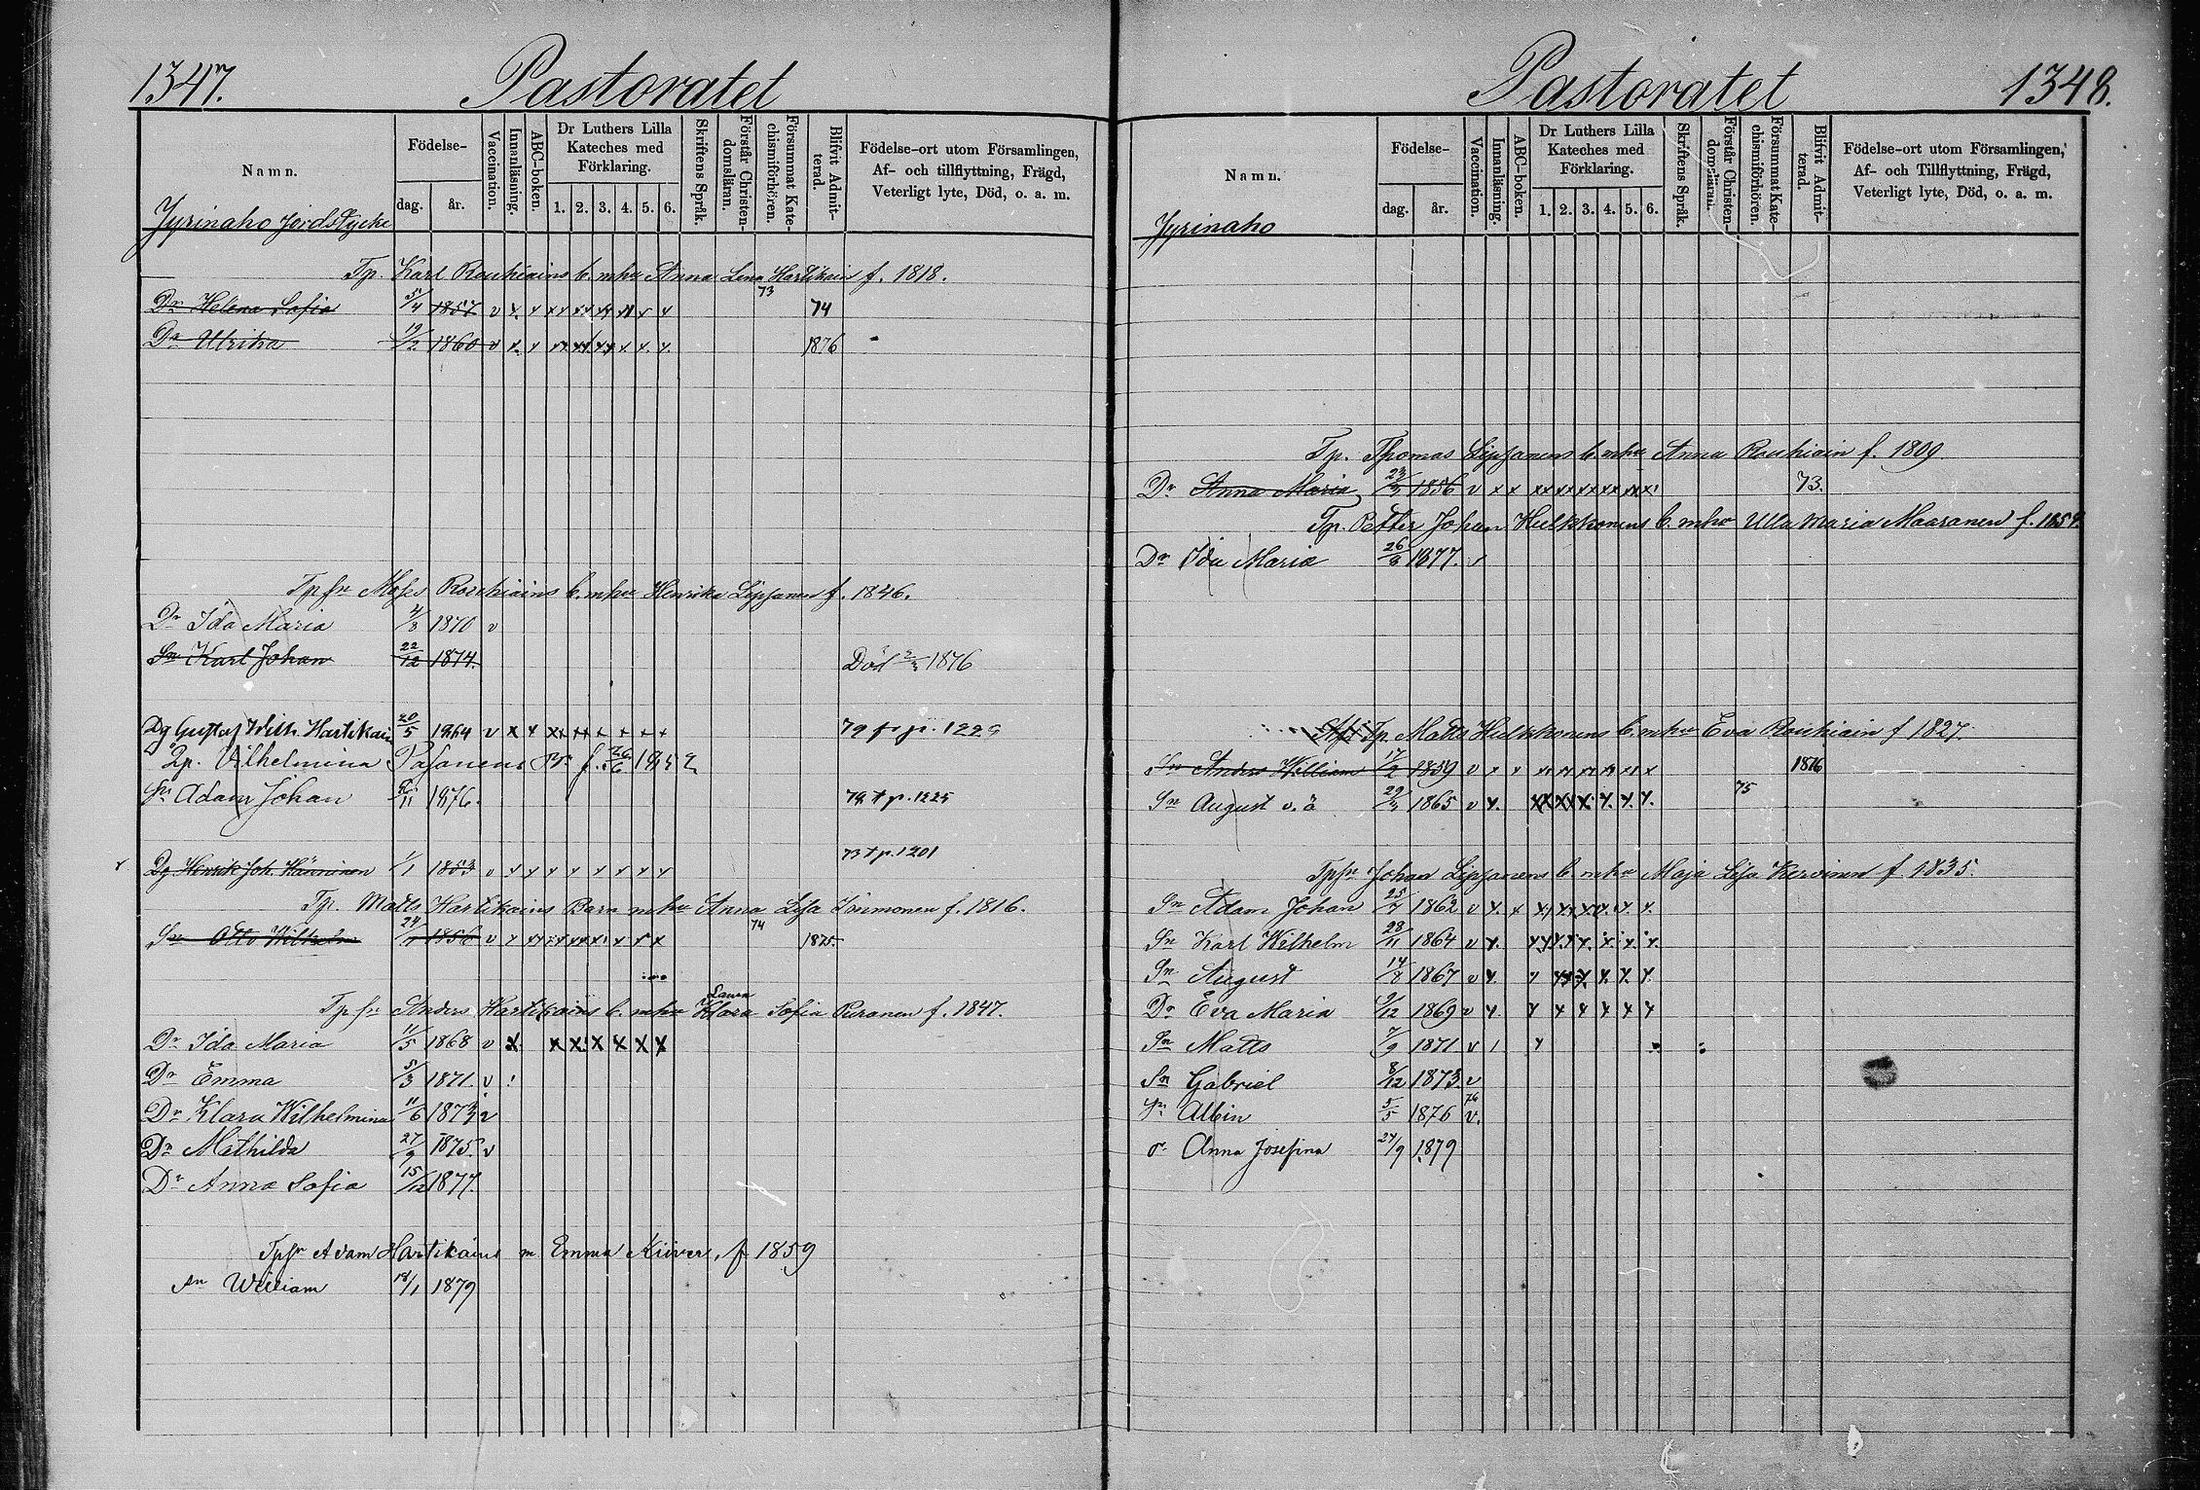 1347.
Pastoratet
Namn.
Födelse-
dag.
år.
Vaccination.
Innanläsning.
ABC-boken.
Dr Luthers Lilla
Kateches med
Förklaring.
1. 2. 3. 4. 5. 6.
Skriftens Språk.
Förstår Christen-
domsläran.
Försummat Kate-
chismiförhören.
Blifvit Admit-
terad.
Födelse-ort utom Församlingen,
Af- och tillflyttning, Frägd,
Veterligt lyte, Död, o. a. m.
Jyrinaho Jordstycke
Tp. Karl Rouhiains b. mhu Anna Lena Hartikain f. 1818.
Dr Helena Sofia 5/4 1857 v x x xx xx xx x x x 73 74
Dr Ulrika 19/2 1860 v x x xx xx xx x x x 1876
Tpsn Moses Rouhiains b. mhu Henrika Lipsanen f. 1846.
Dr Ida Maria 4/8 1870 v
Sn Karl Johan 22/12 1874. Död 1876
Dg Gustaf Wilh. Hartikain 20/5 1864 v x x xx xx x x x x 79 p. 1229
Vilhelmina Pasanens f. 26/6 1852
Sn Adam Johan 1876. 79 p. 1225
73 p. 1201
Dg Henrik Joh. Hänninen 1/1 1853 v x x x x x x x x
Tp. Matts Hartikains Barn mhu Anna Lisa Immonen f. 1816.
Sn Otto Wilhelm 1856 v x xx xx xx x x x x 74 1875.
Laura
Tpsn Anders Hartikains b. mhu Klara Sofia Piiranen f. 1847.
Dr Ida Maria 11/5 1868 v x x x x x x x
Dr Emma 5/3 1871. v
Dr Klara Wilhelmina 11/6 1873 v
Dr Mathilda 27/9 1875. v
Dr Anna Sofia 15/12 1877.
Tpsn Adam Hartikains m Emma Kiiver, f 1859
Sn William 18/1 1879
Pastoratet
1348.
Namn.
Födelse-
dag.
år.
Vaccination.
Innanläsning.
ABC-boken.
Dr Luthers Lilla
Kateches med
Förklaring.
1. 2. 3. 4. 5. 6.
Skriftens Språk.
Förstår Christen-
domsläran.
Försummat Kate-
chismiförhören.
Blifvit Admit-
terad.
Födelse-ort utom Församlingen,
Af- och Tillflyttning, Frägd,
Veterligt lyte, Död, o. a. m.
Jyrinaho
Tp. Thomas Lipsanens b. mhu Anna Rouhiain f. 1809
Dr Anna Maria 1856 v x x xx xx xx xx xx x 73.
Tp. Petter Johan Hulkkonens b. mhu Ulla Maria Maaranen f. 1854
Dr Ida Maria 26/8 1877. v
Tp. Matts Hulkkonens b. mhu Eva Rouhiain f 1827.
Sn Anders William 17/2 1859 v x x xx xx xx xx x x 1876
Sn August v. ä 1865 v x. xx xx x x x x 75
Tpsn Johan Lipsanens b. mhu Maja Lisa Kervinen f. 1835.
Sn Adam Johan 1862 v x. x x x x x x x
Sn Karl Wilhelm 28/11 1864 v x. x x x x x x
Sn August 14/8 1867 v x. x x x x x x
Dr Eva Maria 9/12 1869 v x x x x x x x
Sn Matts 7/9 1871 v
Sn Gabriel 8/12 1873. v
Sn Albin 5/5 1876 76 v.
Anna Josefina 24/9 1879